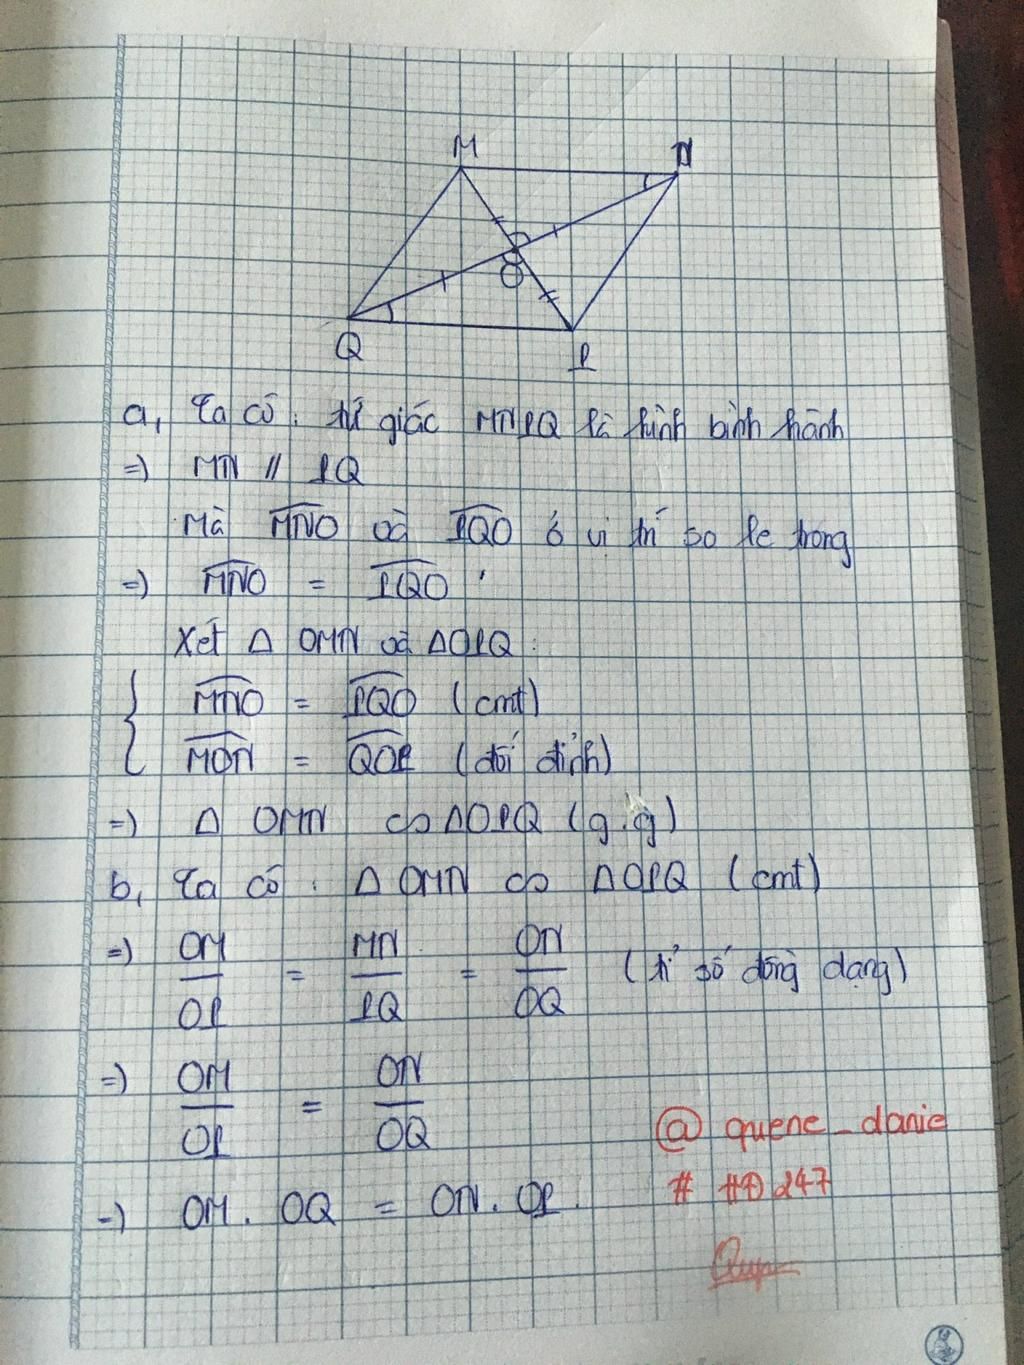 M N
O
Q P
a, Ta có: tứ giác MNPQ là hình bình hành
=) MN // PQ
Mà MNO và PQO ở vị trí so le trong
=) MNO = PQO
Xét Δ OMN và ΔOPQ:
{ MNO = PQO (cmt)
MON = QOP (đối đỉnh)
=) Δ OMN ∽ ΔOPQ (g.g)
b, Ta có: Δ OMN ∽ ΔOPQ (cmt)
=) OM/OP = MN/PQ = ON/OQ (tỉ số đồng dạng)
=) OM/OP = ON/OQ
=) OM. OQ = ON. OP.
@ quene_danie
# HĐ247